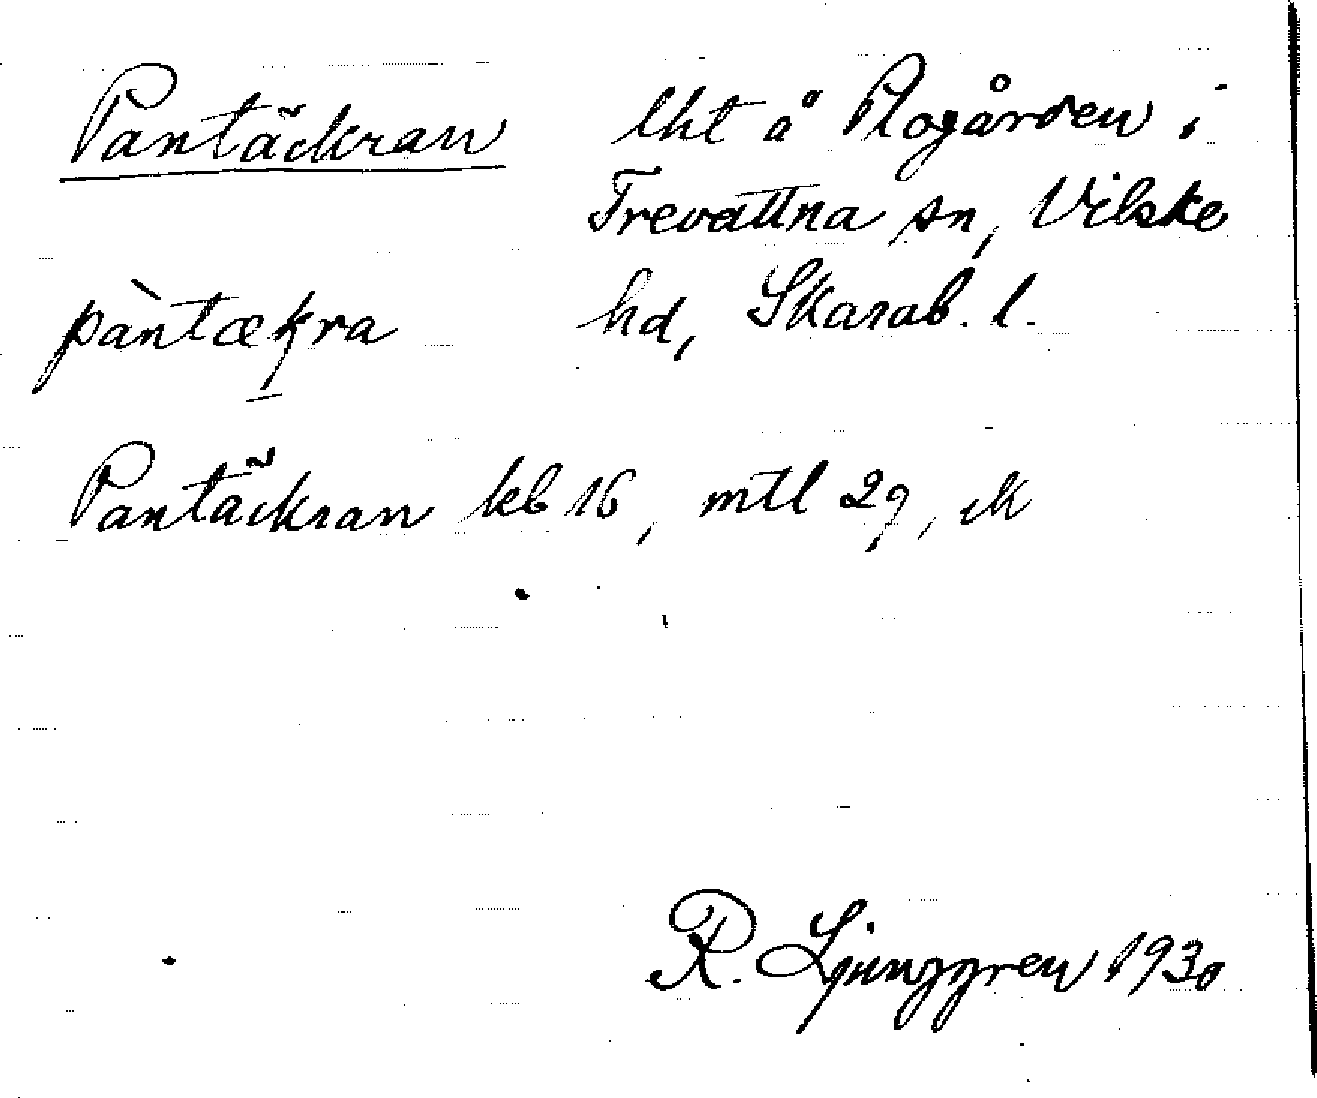 Pantäckran lht å Plogården i
Trevattna sn, Vilske
pàntækra hd, Skarab. l.
Pantäckran kb 16, mtl 29, ek
R. Ljunggren 1930